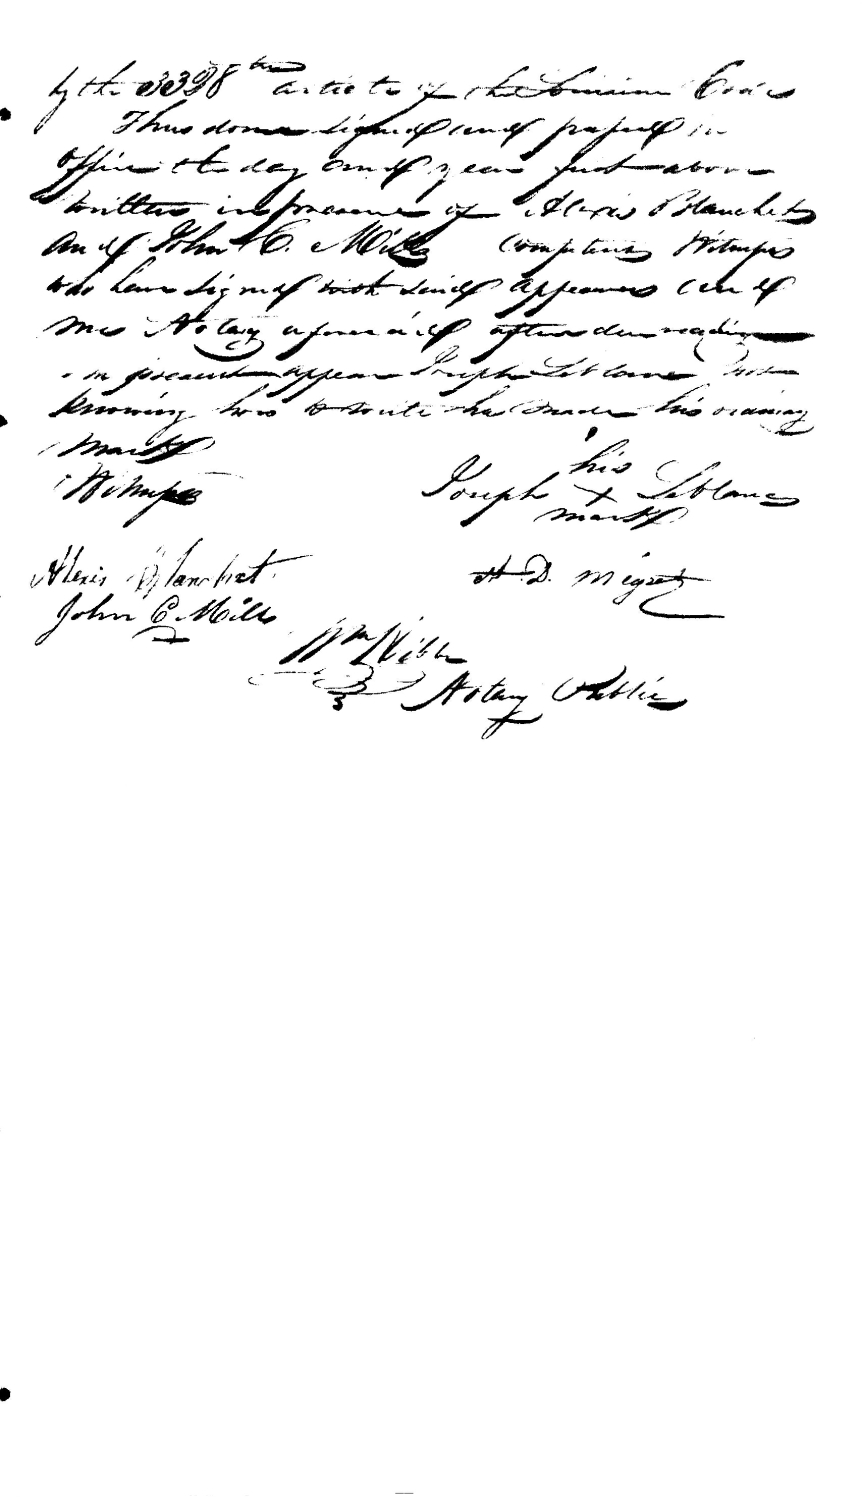 by the 3328th article of the Louisiana Code
Thus done signed and passed in
Office the day and year first above
written in presence of Alexis Blanchet
and John C. Mills competent Witnesses
who have signed with said Appearers and
me Notary aforesaid after due reading
in present appear Joseph Leblanc not
knowing how to write he made his ordinary
mark
Witnesses
his
Joseph + Leblanc
mark
Alexis Blanchet
H. D. Migret
John C. Mills
Wm
Notary Public